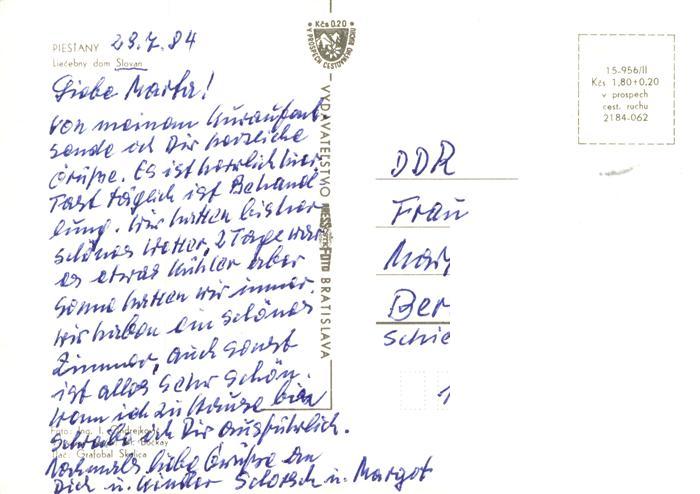 PIEŠŤANY 23.7.84
Liečebný dom Slovan
Liebe Marta!
von meinem Kuraufent
sende ich Dir herzliche
Grüße. Es ist herrlich hier
Fast täglich ist Behand
lung. Wir hatten bisher
schönes Wetter, 2 Tage war
es etwas kühler aber
Sonne hatten wir immer.
Wir haben ein schönes
Zimmer, auch sonst
ist alles sehr schön.
Wenn ich zu Hause bin
schreibe ich Dir ausführlich.
Nochmals liebe Grüße an
Dich u. Kinder Schorsch u. Margot
Foto: Ing. I.
Tlač: Grafobal Skalica
Kčs 0.20
V PROSPECH CESTOVNÉHO RUCHU
VYDAVATEĽSTVO PRESSFOTO BRATISLAVA
15-956/II
Kčs 1,80+0.20
v prospech
cest. ruchu
2184-062
DDR
Frau
Mar
Ber
Schie
1